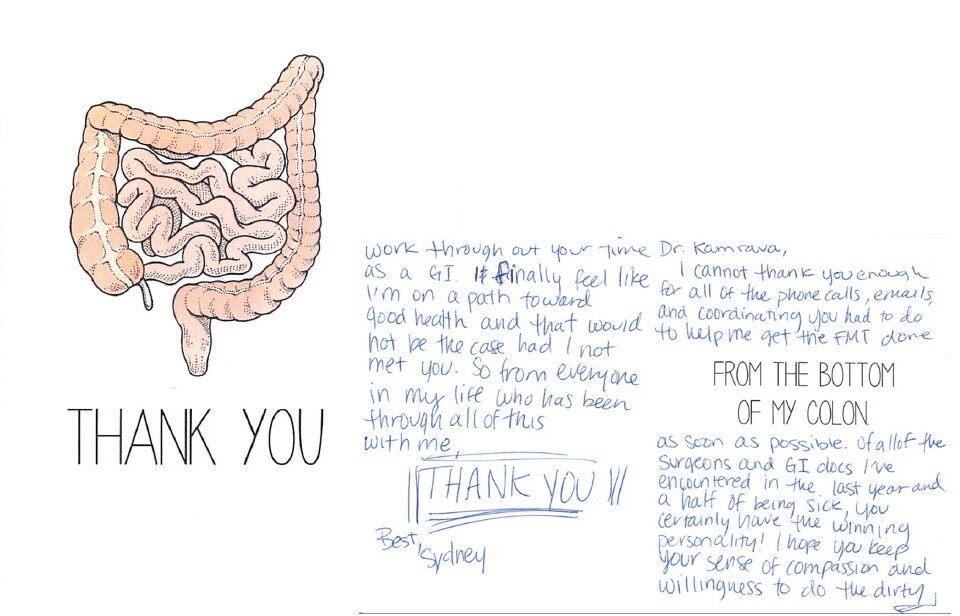 THANK YOU
Dr. Kamrava,
I cannot thank you enough
for all of the phone calls, emails,
and coordinating you had to do
to help me get the FMT done
FROM THE BOTTOM
OF MY COLON.
as soon as possible. Of all of the
surgeons and GI docs I've
encountered in the last year and
a half of being sick, you
certainly have the winning
personality! I hope you keep
your sense of compassion and
willingness to do the dirty
work through out your time
as a GI. I finally feel like
I'm on a path toward
good health and that would
not be the case had I not
met you. So from everyone
in my life who has been
through all of this
with me,
THANK YOU!!
Best,
Sydney